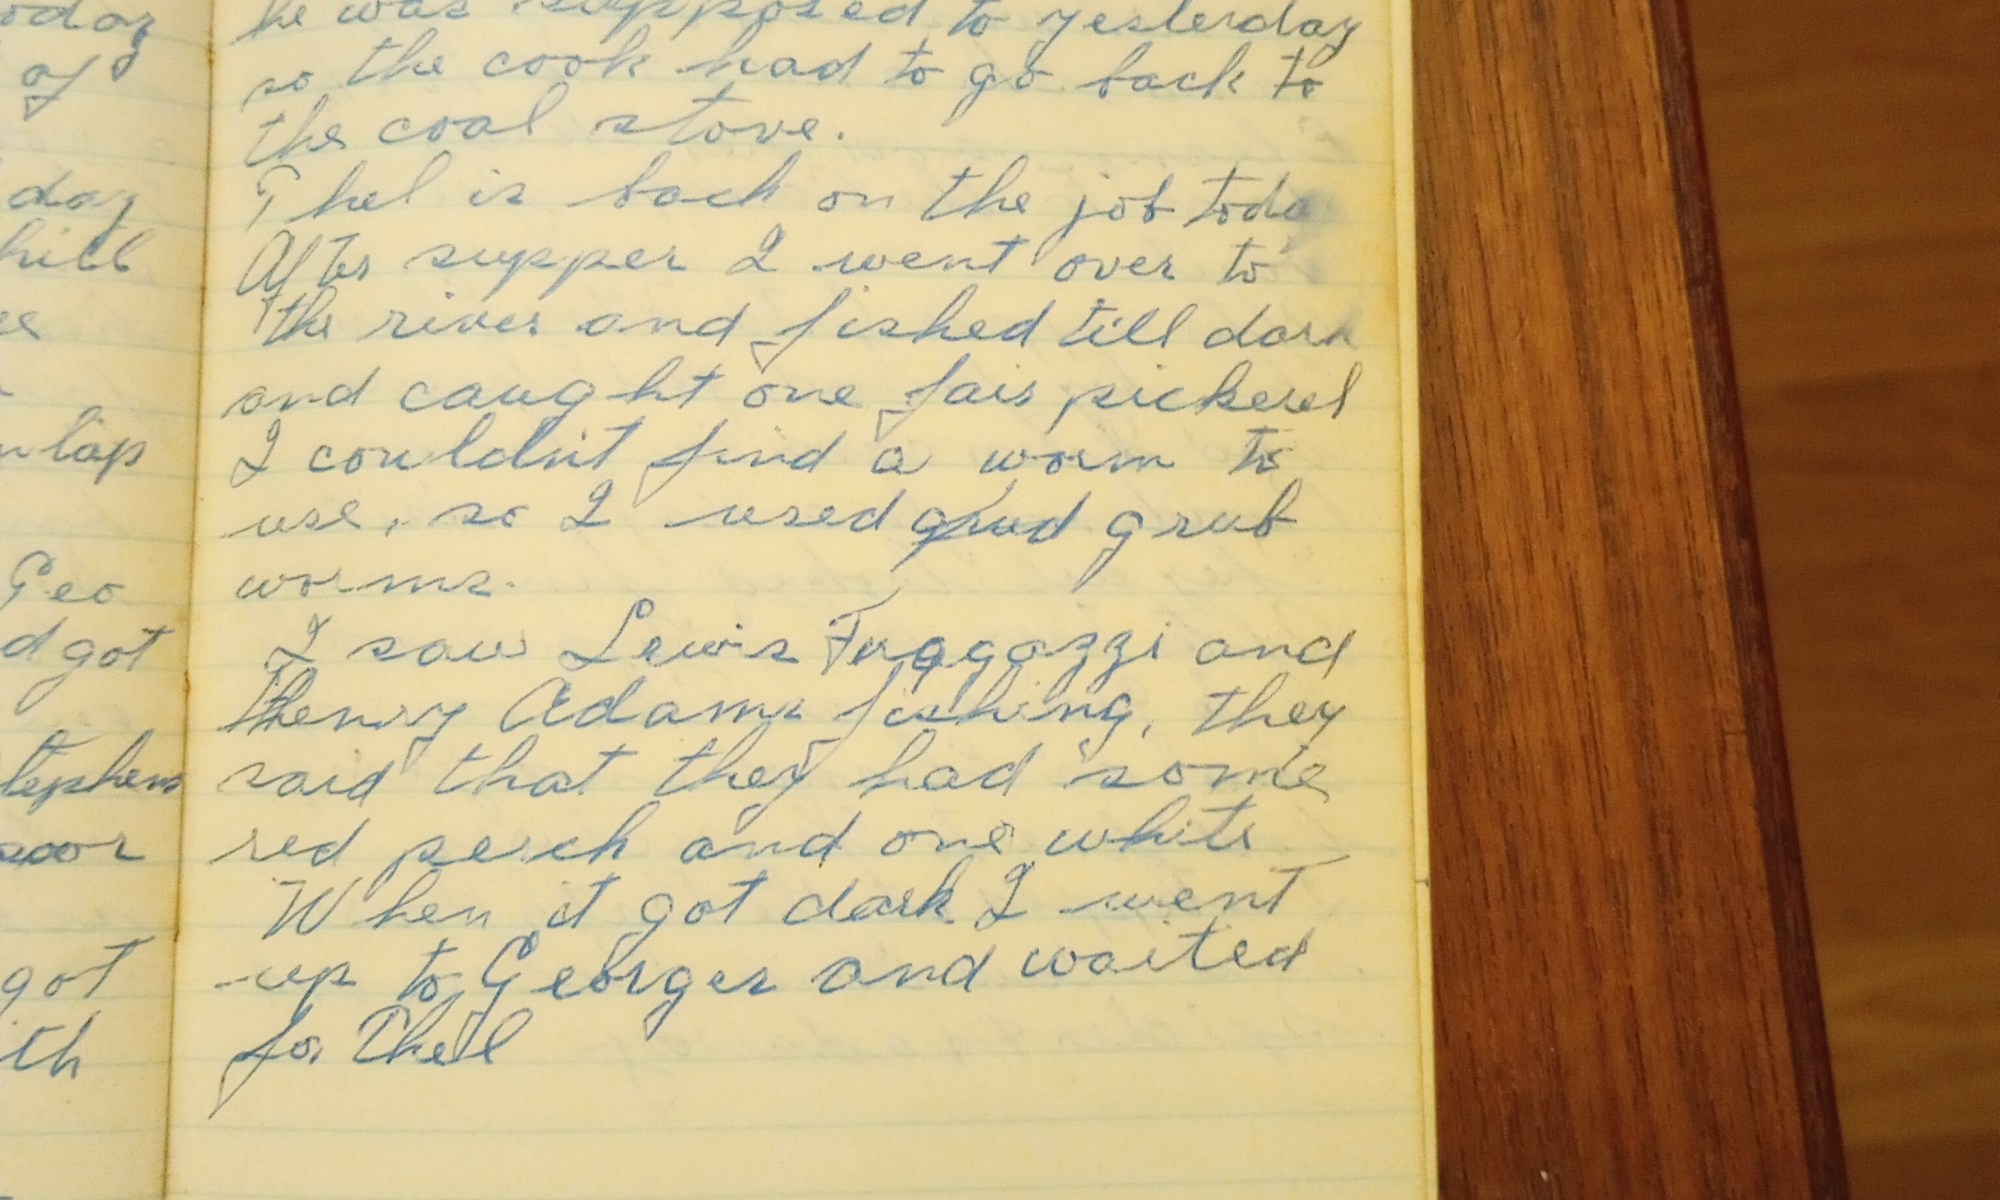 oday
of
day
hill
ee
nlap
Geo
d got
tephens
poor
got
ith
he was supposed to yesterday
so the cook had to go back to
the coal stove.
Thel is back on the job toda
After supper I went over to
the river and fished till dark
and caught one fair pickerel
I couldn't find a worm to
use, so I used grub
worms.
I saw Lewis Fragozzi and
Henry Adams fishing, they
said that they had some
red perch and one white
When it got dark I went
up to Georges and waited
for Thel